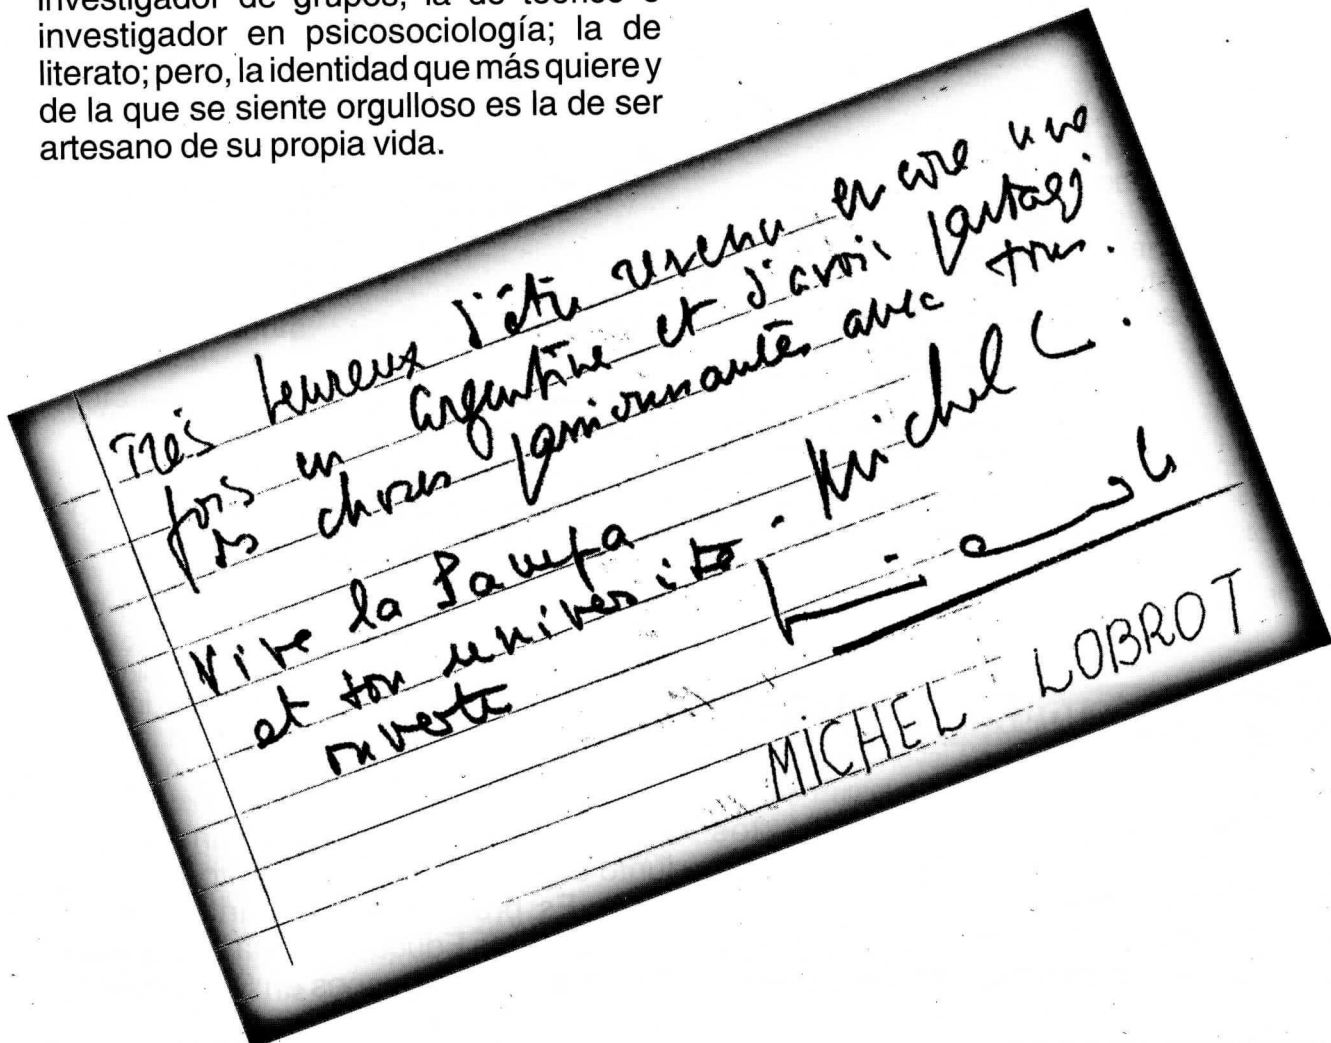 investigador de grupos; la de teórico e
investigador en psicosociología; la de
literato; pero, la identidad que más quiere y
de la que se siente orgulloso es la de ser
artesano de su propia vida.
Très heureux d'être revenu encore une
fois en Argentine et d'avoir partagé
des choses passionnantes avec tous.
Michel L.
Vive la Pampa
et son université
ouverte
MICHEL LOBROT